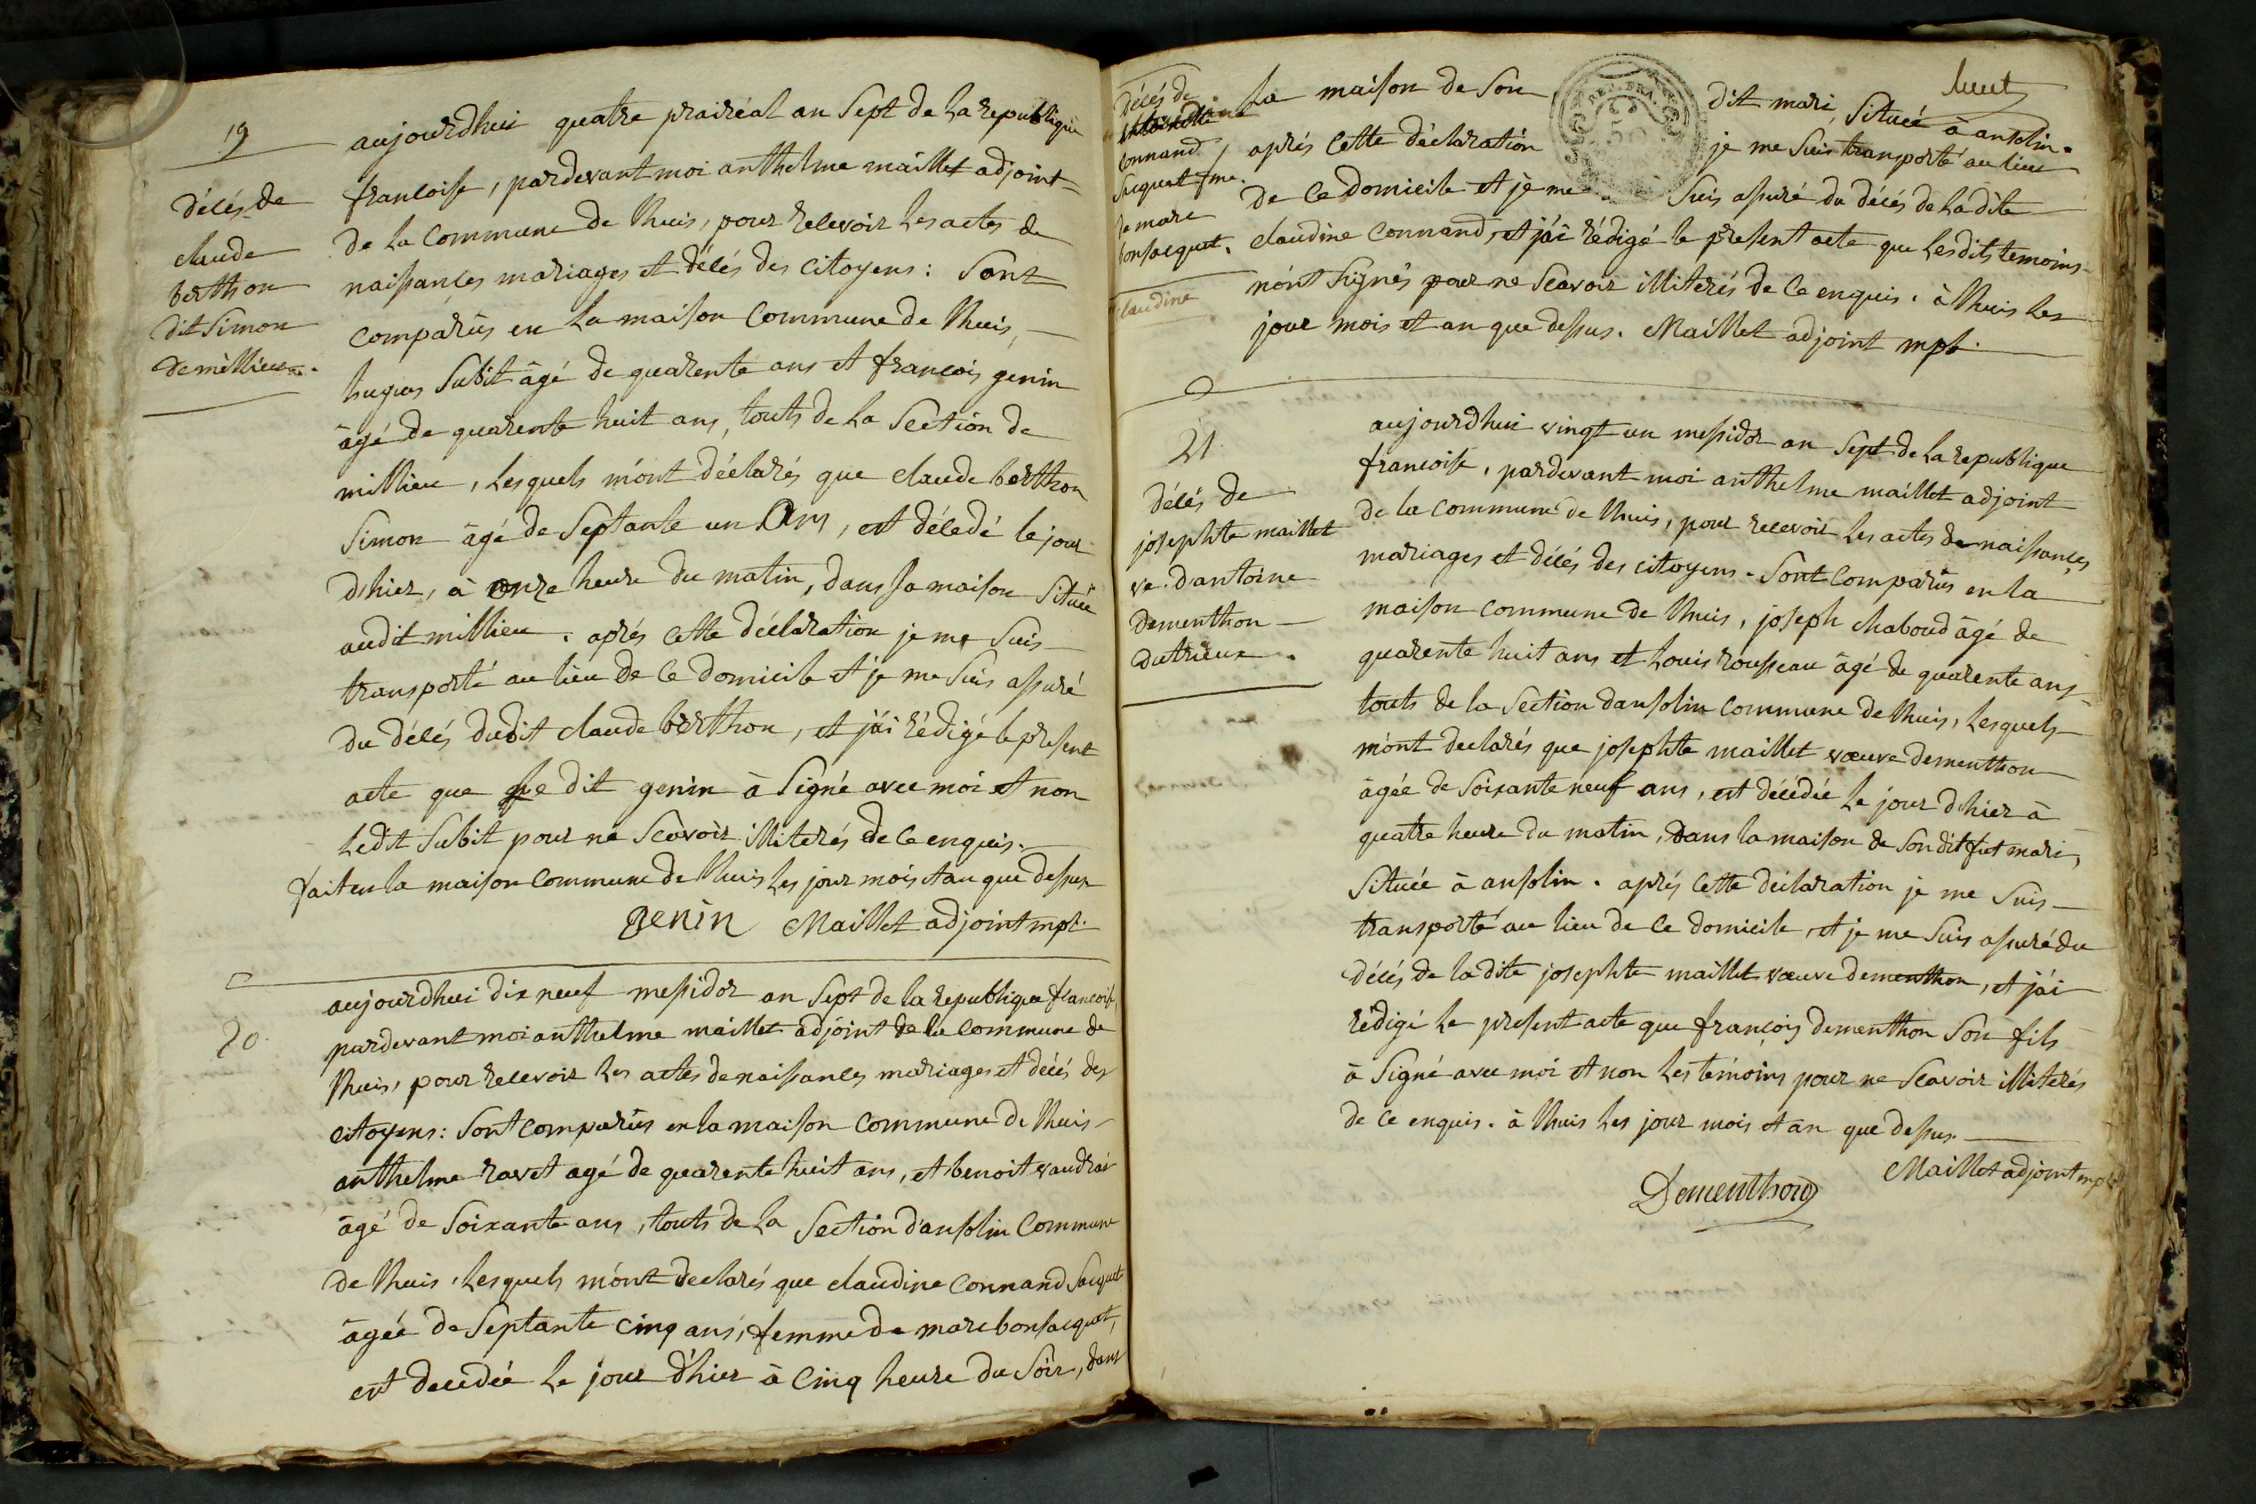 19
décés de
claude
berthon
dit Simon
de millieu.
aujourdhui quatre prairéal an Sept de la republique
francoise, pardevant moi anthelme maillet adjoint
de la commune de Lhuis, pour recevoir les actes de
naissances mariages et décés des citoyens : Sont
comparûs en la maison commune de Lhuis,
hugues Subit âgé de quarente ans et francois genin
âgé de quarente huit ans, touts de la Section de
millieu, lesquels m'ont déclarés que claude berthon
Simon âgé de Septante un Ans, est décedé le jour
dhier, à onze heure du matin, dans sa maison Située
audit millieu. aprés cette déclaration je me Suis
transporté au lieu de ce domicile et je me Suis assuré
du décés dudit claude berthon, et j'ai rédigé le present
acte que le dit genin à Signé avec moi et non
ledit Subit pour ne Scavoir illiterés de ce enquis.
fait en la maison commune de Lhuis les jour mois et an que dessus
genin Maillet adjoint mpt.
20.
aujourdhui dix neuf messidor an Sept de la republique francoise
pardevant moi anthelme maillet adjoint de la commune de
Lhuis, pour recevoir les actes de naissances mariages et décés des
citoyens : Sont comparûs en la maison commune de Lhuis
anthelme ravet agé de quarente huit ans, et benoit vaudrai
âgé de Soixante ans, touts de la Section d'ansolin commune
de Lhuis, lesquels m'ont declarés que claudine Connand Sacquet
âgée de Septante cinq ans, femme de marc bonsacquet,
est decedée le jour d'hier à cinq heure du Soir, dans
décés de
Connand
Sacquet fme.
de marc
bonsacquet.
claudine
la maison de Son dit mari, Située à ansolin.
aprés cette déclaration je me Suis transporté au lieu
de ce domicile et je me Suis assuré du décés de ladite
claudine Connand, et j'ai rédigé le present acte que lesdits temoins
n'ont Signés pour ne Scavoir illiterés de ce enquis. à Lhuis les
jour mois et an que dessus. Maillet adjoint mpt.
21.
décés de
josephte maillet
ve. d'antoine
dementhon
dutrieux.
aujourdhui vingt un messidor an Sept de la republique
francoise, pardevant moi anthelme maillet adjoint
de la commune de Lhuis, pour recevoir les actes de naissances
mariages et décés des citoyens. Sont comparûs en la
maison commune de Lhuis, joseph chaboud âgé de
quarente huit ans et Louis rousseau âgé de quarente ans
touts de la Section dansolin commune de Lhuis, lesquels
m'ont declarés que josephte maillet vœuve dementhon
âgée de Soixante neuf ans, est décédée le jour dhier à
quatre heure du matin, dans la maison de Son dit fut mari,
Située à ansolin. aprés cette déclaration je me Suis
transporté au lieu de ce domicile, et je me Suis assuré du
décés de ladite josephte maillet vœuve dementhon, et j'ai
rédigé le present acte que francois dementhon Son fils
à Signé avec moi et non les témoins pour ne Scavoir illiterés
de ce enquis. à Lhuis les jour mois et an que dessus.
Maillet adjoint mpt
Dementhon